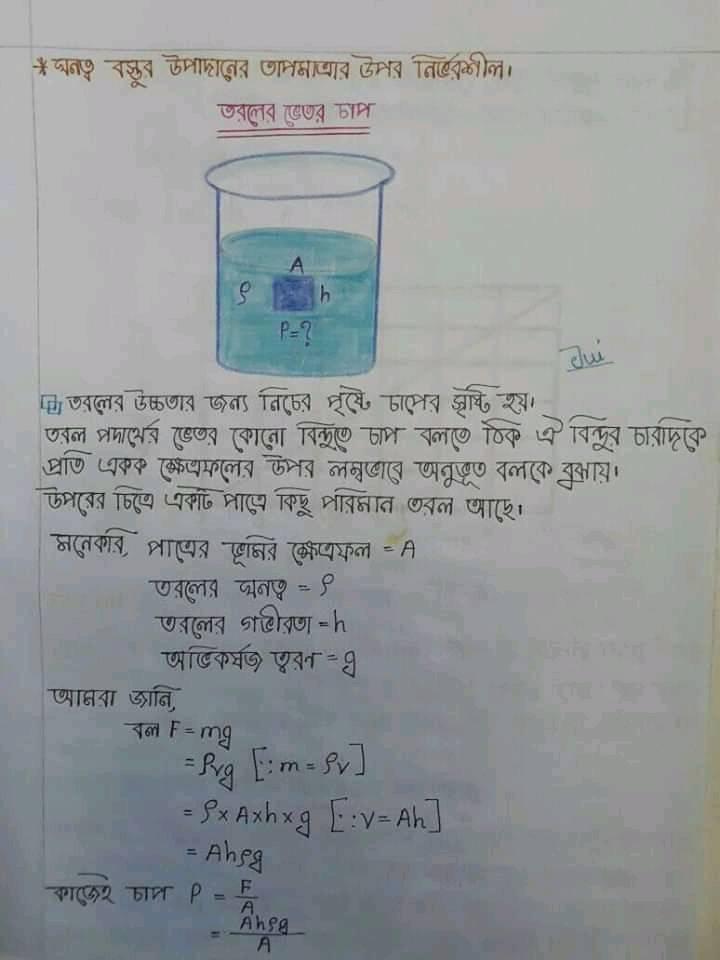 * ঘনত্ব বস্তুর উপাদানের তাপমাত্রার উপর নির্ভরশীল।
তরলের ভেতর চাপ
A
ρ h
P=?
Jui
তরলের উচ্চতার জন্য নিচের পৃষ্টে চাপের সৃষ্টি হয়।
তরল পদার্থের ভেতর কোনো বিন্দুতে চাপ বলতে ঠিক ঐ বিন্দুর চারদিকে
প্রতি একক ক্ষেত্রফলের উপর লম্বভাবে অনুভূত বলকে বুঝায়।
উপরের চিত্রে একটি পাত্রে কিছু পরিমান তরল আছে।
মনেকরি, পাত্রের ভূমির ক্ষেত্রফল = A
তরলের ঘনত্ব = ρ
তরলের গভীরতা = h
অভিকর্ষজ ত্বরন = g
আমরা জানি,
বল F = mg
= ρvg [∵ m = ρv]
= ρ × A × h × g [∵ V = Ah]
= Ahρg
কাজেই চাপ P = F/A
= Ahρg/A